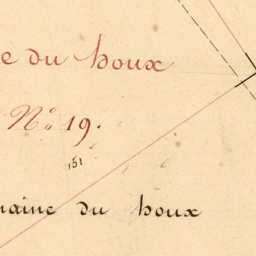 e du houx
N° 19.
151
maine du houx